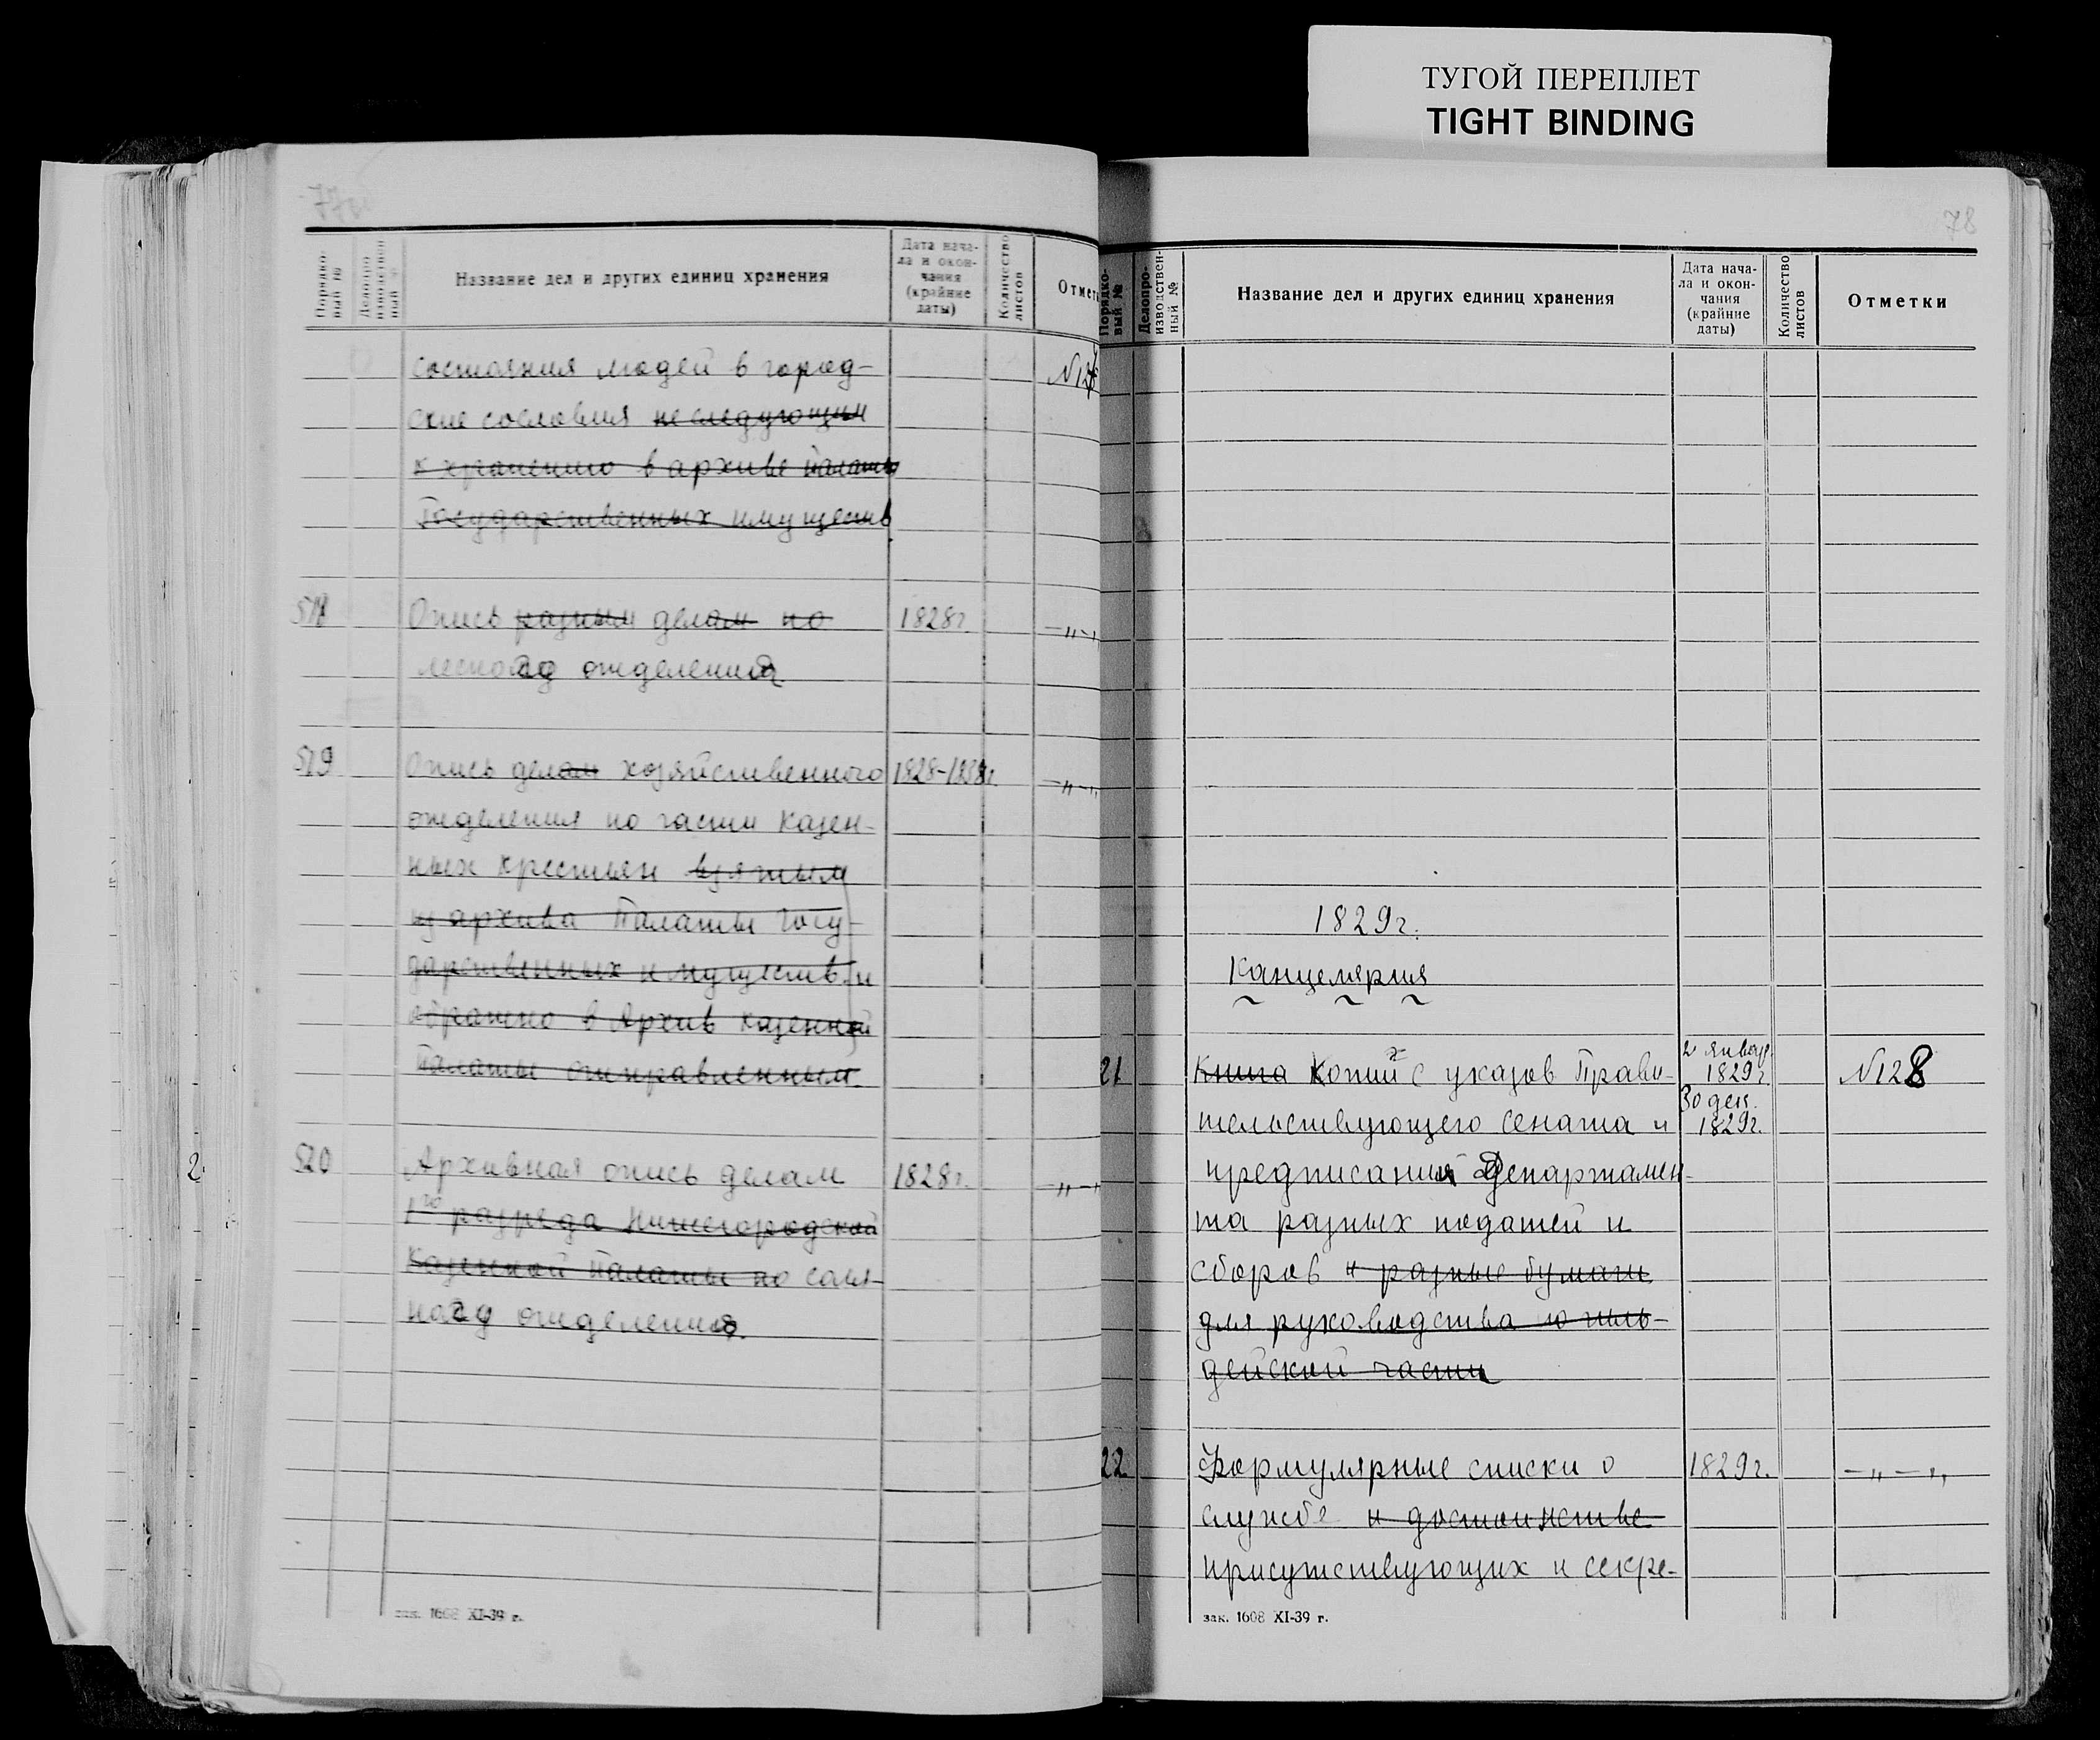 ТУГОЙ ПЕРЕПЛЕТ
TIGHT BINDING
77об
Порядко-
вый №
Делопро-
изводствен-
ный №
Название дел и других единиц хранения
Дата нача-
ла и окон-
чания
(крайние
даты)
Количество
листов
Отмет
состояния людей в город-
ские сословия не следующим
к хранению в архиве палаты
Государственных имуществ
518 Опись разным делам по 1828г. -„-„
лесного отделения
519 Опись делам хозяйственного 1828-1838г. -„-„
отделения по части казен-
ных крестьян взятым
из архива Палаты Госу-
дарственных имуществ и
обратно в Архив казенной
палаты отправленным
520 Архивная опись делам 1828г. -„-„
1го разряда Нижегородской
Казенной палаты по соля-
ного отделения
зак. 1608 XI-39 г.
2
78
Порядко-
вый №
Делопро-
изводствен-
ный №
Название дел и других единиц хранения
Дата нача-
ла и окон-
чания
(крайние
даты)
Количество
листов
Отметки
1829г.
Канцелярия
21 Книга Копии с указов Прави- 2 январ. 1829г. №128
тельствующего сената и 30 дек. 1829г.
предписаний Департамен-
та разных податей и
сборов и разные бумаги
для руководства по гиль-
дейской части
22 Формулярные списки о 1829г. -„-„
службе и достоинстве
присутствующих и секре-
зак. 1608 XI-39 г.